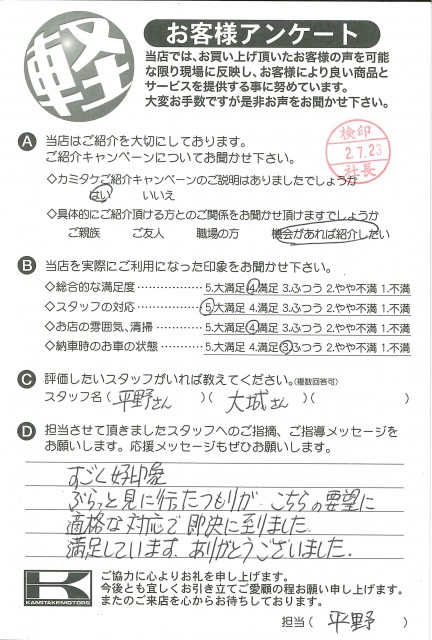 軽
お客様アンケート
当店では、お買い上げ頂いたお客様の声を可能
な限り現場に反映し、お客様により良い商品と
サービスを提供する事に努めています。
大変お手数ですが是非お声をお聞かせ下さい。
A 当店はご紹介を大切にしております。
ご紹介キャンペーンについてお聞かせ下さい。
検印
2.7.23
社長
◇カミタケご紹介キャンペーンのご説明はありましたでしょうか
はい いいえ
◇具体的にご紹介頂ける方とのご関係をお聞かせ頂けますでしょうか
ご親族 ご友人 職場の方 機会があれば紹介したい
B 当店を実際にご利用になった印象をお聞かせ下さい。
◇総合的な満足度 ················ 5.大満足 4.満足 3.ふつう 2.やや不満 1.不満
◇スタッフの対応 ················ 5.大満足 4.満足 3.ふつう 2.やや不満 1.不満
◇お店の雰囲気、清掃 ·········· 5.大満足 4.満足 3.ふつう 2.やや不満 1.不満
◇納車時のお車の状態 ········· 5.大満足 4.満足 3.ふつう 2.やや不満 1.不満
C 評価したいスタッフがいれば教えてください。(複数回答可)
スタッフ名 ( 平野さん )( 大城さん )( )
D 担当させて頂きましたスタッフへのご指摘、ご指導メッセージを
お願いします。応援メッセージもぜひお願いします。
すごく好印象
ぶらっと見に行たつもりが、こちらの要望に
適格な対応で即決に至りました。
満足しています。ありがとうございました。
K
KAMITAKEMOTORS
ご協力に心よりお礼を申し上げます。
今後とも宜しくお引き立てご愛顧の程お願い申し上げます。
またのご来店を心からお待ちしております。
担当 ( 平野 )